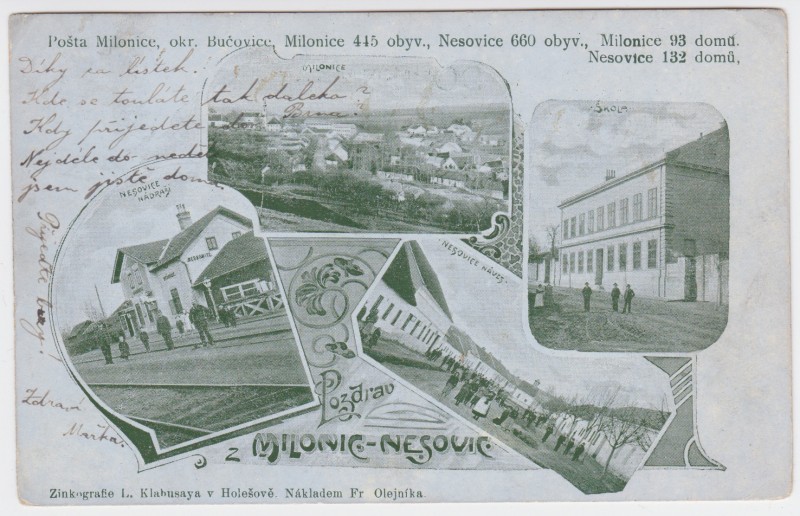 Pošta Milonice, okr. Bučovice, Milonice 445 obyv., Nesovice 660 obyv., Milonice 93 domů.
Nesovice 132 domů,
Díky za lístek!
Kde se touláte tak daleko?
Kdy přijedete do
Nejdéle do
jsem jistě doma
MILONICE
ŠKOLA
NESOVICE
NÁDRAŽÍ
NESOVICE NÁVES.
Zdraví
Mařka.
Pozdrav
z MILONIC-NESOVIC
Zinkografie L. Klabusaya v Holešově. Nákladem Fr Olejníka.